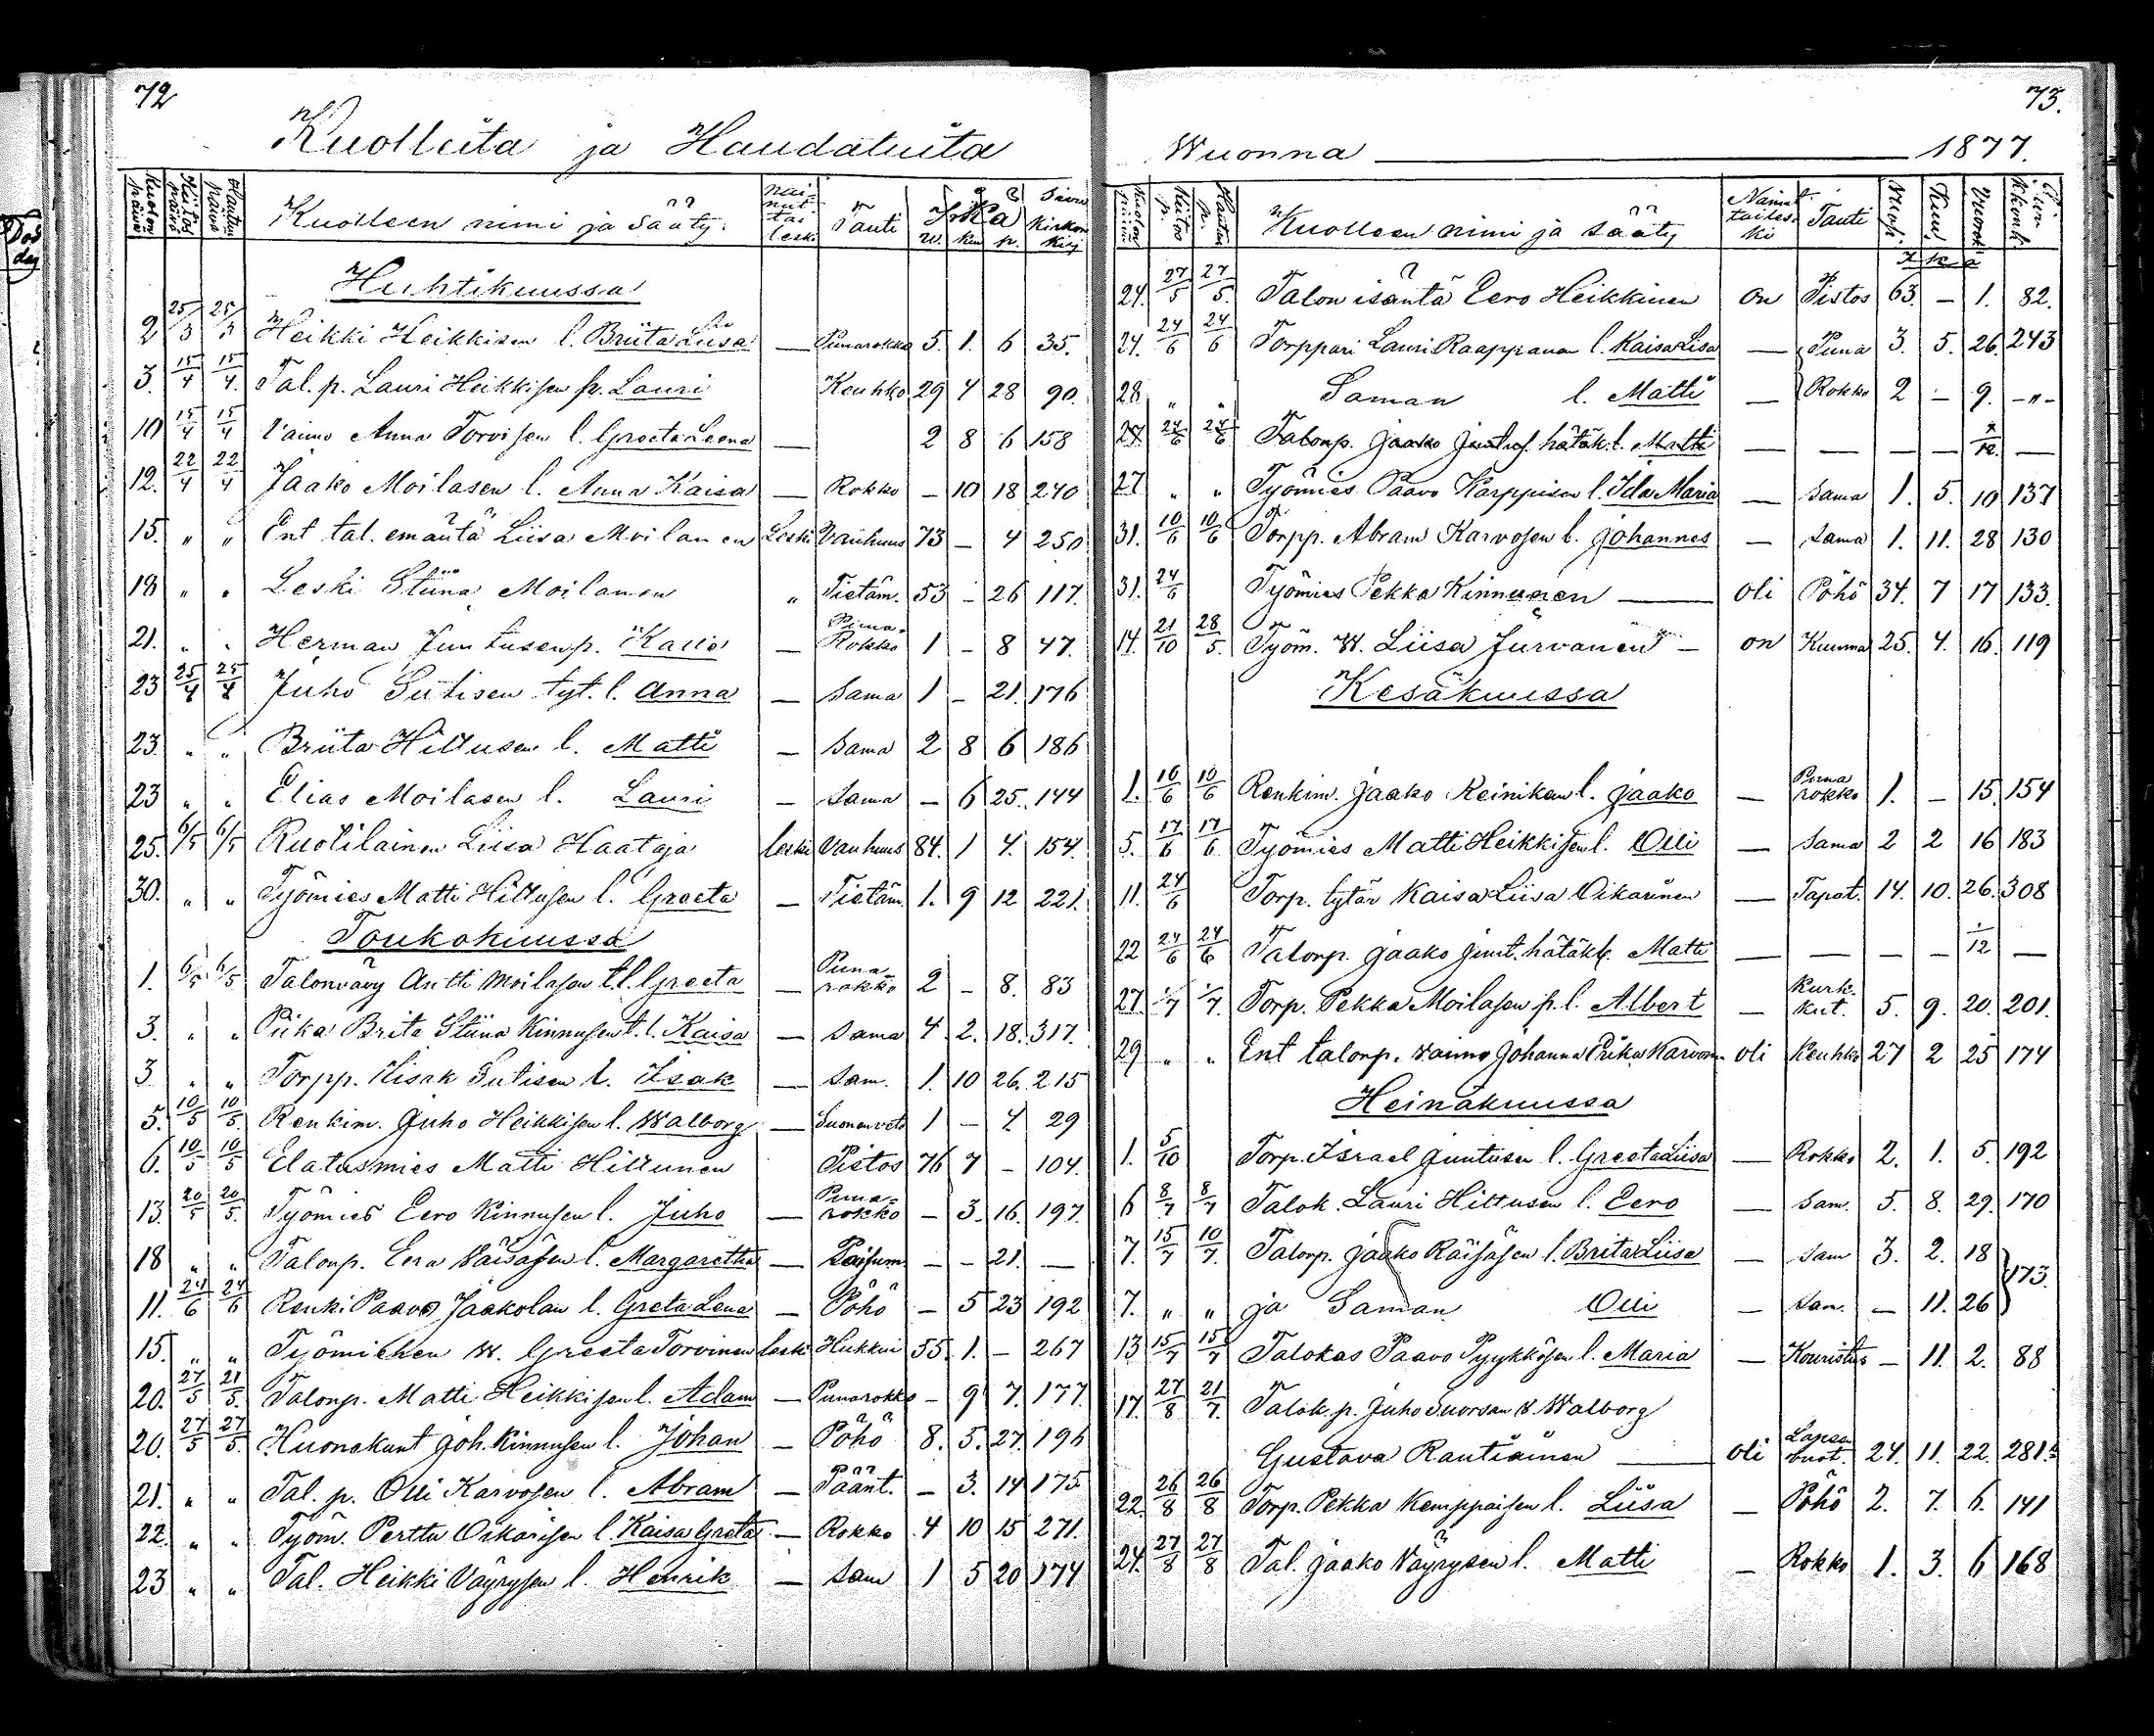 72
Kuolleita ja Haudatuita
Kuolon päivä Kiitos päivä Hautaus päivä Kuolleen nimi ja Sääty. Nainut tai leski Tauti Ikä w. kuu p. Sivu Kirkon kirj
Huhtikuussa
2 25/3 25/3 Heikki Heikkisen l. Briita Liisa — Punarokko 5 1. 6 35.
3. 15/4 15/4. Tal. p. Lauri Heikkisen p. Lauri Keuhko 29 4 28 90.
10 15/4 15/4 Vaimo Anna Torvisen l. Greeta Leena — 2 8 6 158
12. 22/4 22/4 Jaako Moilasen l. Anna Kaisa — Rokko — 10 18 240
15. " " Ent tal. emäntä Liisa Moilanen Leski Vanhuus 73 — 4 250
18 " " Leski Stiina Moilanen " Tietäm. 53 — 26 117.
21. " " Herman Juntusen p. Kalle — Puna-Rokko 1 — 8 47.
23 25/4 25/4 Juho Sutisen tyt. l. Anna — Sama 1 — 21. 176
23. " " Briita Hiltusen l. Matti — Sama 2 8 6 186
23 " " Elias Moilasen l. Lauri — Sama — 6 25. 144
25. 6/5 6/5 Ruotilainen Liisa Haataja leski Vanhuus 84. 1 4. 154.
30. " " Työmies Matti Hiltusen l. Greeta — Tietäm. 1. 9 12 221.
Toukokuussa
1. 6/5 6/5 Talonvävy Antti Moilasen t.l. Greeta — Puna-rokko 2 — 8. 83
3. " " Piika Brita Stiina Kinnusen t. l. Kaisa — Sama 4. 2. 18. 317.
3 " " Torpp. Kisak Sutisen l. Isak — Sam. 1. 10 26. 215
5. 10/5 10/5. Renkim. Juho Heikkisen l. Walborg — Suonenveto 1 — 4 29
6. 10/5 10/5 Elatusmies Matti Hiltunen Pistos 76 7 — 104.
13. 20/5 20/5. Työmies Eero Kinnusen l. Juho — Puna-rokko — 3. 16. 197.
18 " " Talonp. Eera Väisäsen l. Margaretha — Paisum — — 21. —
11. 24/6 24/6 Renki Paavo Jaakolan l. Greta Lena — Pöhö — 5 23 192
15. " " Työmiehen w. Greeta Torvinen leski Hukkui 55. 1. — 267
20. 27/5 21/5. Talonp. Matti Heikkisen l. Adam — Punarokko — 9 7. 177.
20. 27/5 27/5. Huonekunt Joh. Kinnusen l. Johan — Pöhö 8. 5. 27. 196
21. " " Tal. p. Olli Karvosen l. Abram — Päänt. — 3. 14 175
22. " " Työm. Perttu Oikarisen l. Kaisa Greta — Rokko 4 10 15 271.
23 " " Tal. Heikki Väyrysen l. Henrik — Sam 1 5 20 174
73.
Wuonna — 1877.
Kuolon päivä Kiitos p. Hautaus p. Kuolleen nimi ja sääty Nainut tai leski Tauti Wuosi. Kuu. Vuorok Ikä
24. 27/5 27/5. Talon isäntä Eero Heikkinen on Pistos 63. — 1. 82.
24. 24/6 24/6 Torppari Lauri Raappanan l. Kaisa Lisa — Puna 3. 5. 26. 243
28 " " Saman l. Matti — Rokko 2 — 9. -"-
27. 24/6 24/6 Talonp. Jaako Juntus. hätäk. l. Matti — — — — 1/12. —
27 " " Työmies Paavo Karppisen l. Ida Maria — Sama 1. 5. 10 137
31. 10/6 10/6 Torpp. Abram Karvosen l. Johannes — Sama 1. 11. 28 130
31. 24/6 Työmies Pekka Kinnunen — oli Pöhö 34. 7 17 133.
14. 21/10 28/5. Työm. W. Liisa Jurvanen — on Kuuma 25. 4. 16. 119
Kesäkuussa
1. 10/6 10/6 Renkim. Jaako Keinäsen l. Jaako — Puna rokko 1. — 15. 154
5. 17/6 17/6. Työmies Matti Heikkisen l. Olli — Sama 2 2 16 183
11. 24/6 Torp. tytär Kaisa Liisa Oikarinen — Tapat. 14. 10. 26. 308
22 24/6 24/6 Talonp. Jaako Junt. hätäk l. Matti — — — — 1/12 —
27. 1/7 1/7. Torp. Pekka Moilasen p. l. Albert — Kurk-kut. 5. 9. 20. 201.
29 " " Ent talonp. vaimo Johanna Erika Karvonen oli Keuhko 27 2 25 174
Heinäkuussa
1. 5/10 Torp. Israel Juntusen l. Greeta Liisa — Rokko 2. 1. 5. 192
6 8/7 8/7 Talok. Lauri Hiltusen l. Eero — Sam. 5. 8. 29. 170
7. 15/7 10/7. Talonp. Jaako Räisäsen l. Brita Liisa — Sam 3. 2. 18 173.
7. " " ja Saman Olli — Sam. — 11. 26
13 15/7 15/7 Talokas Paavo Pyykkösen l. Maria — Kouristus — 11. 2. 88
17. 27/8 21/7. Talok. p. Juho Suorsan w. Walborg
Gustava Rautiainen — oli Lapsenbuot. 24. 11. 22. 281.
22. 26/8 26/8 Torp. Pekka Kemppaisen l. Liisa — Pöhö 2. 7. 6. 141
24. 27/8 27/8 Tal. Jaako Väyrysen l. Matti — Rokko 1. 3. 6 168